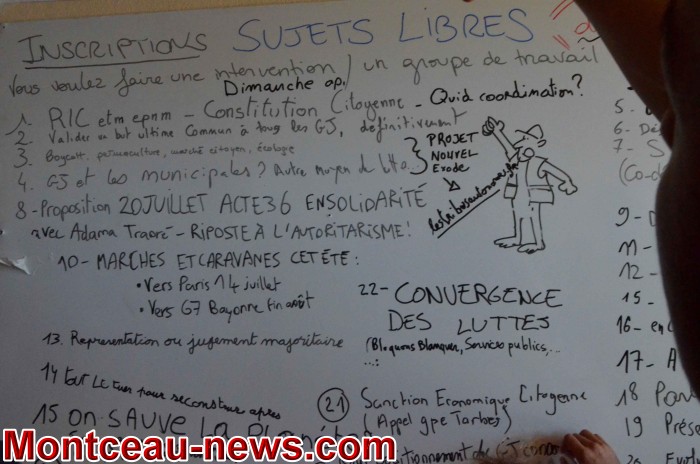 INSCRIPTIONS SUJETS LIBRES
Vous voulez faire une intervention / un groupe de travail
Dimanche api
1. RIC etm epnm - Constitution Citoyenne - Quid coordimation?
2. Valider un but ultime Commun à tous les GJ, définitivement
3. Boycott, permaculture, marché citoyen, écologie
4. GJ et les municipales? Autre moyen de lutte
PROJET
NOUVEL
Exode
8-Proposition 20 JUILLET ACTE 36 EN SOLIDARITÉ
avec Adama Traoré - RIPOSTE À L'AUTORITARISME!
10- MARCHES ET CARAVANES CET ÉTÉ:
• Vers Paris 14 juillet
• Vers G7 Bayonne fin août
22- CONVERGENCE
DES LUTTES
(Bloquons Blanquer, Services publics,...
...:
13. Représentation ou jugement majoritaire
14 tout pour reconstruire après
15 ON SAUVE La Planète
21 Sanction Economique Citoyenne
(Appel gpe Tarbes)
du GJ
5-
6-
7- S
(Co-
9-
11-
12-
15-
16- en
17- A
18 Par
19 Prése
20
Montceau-news.com